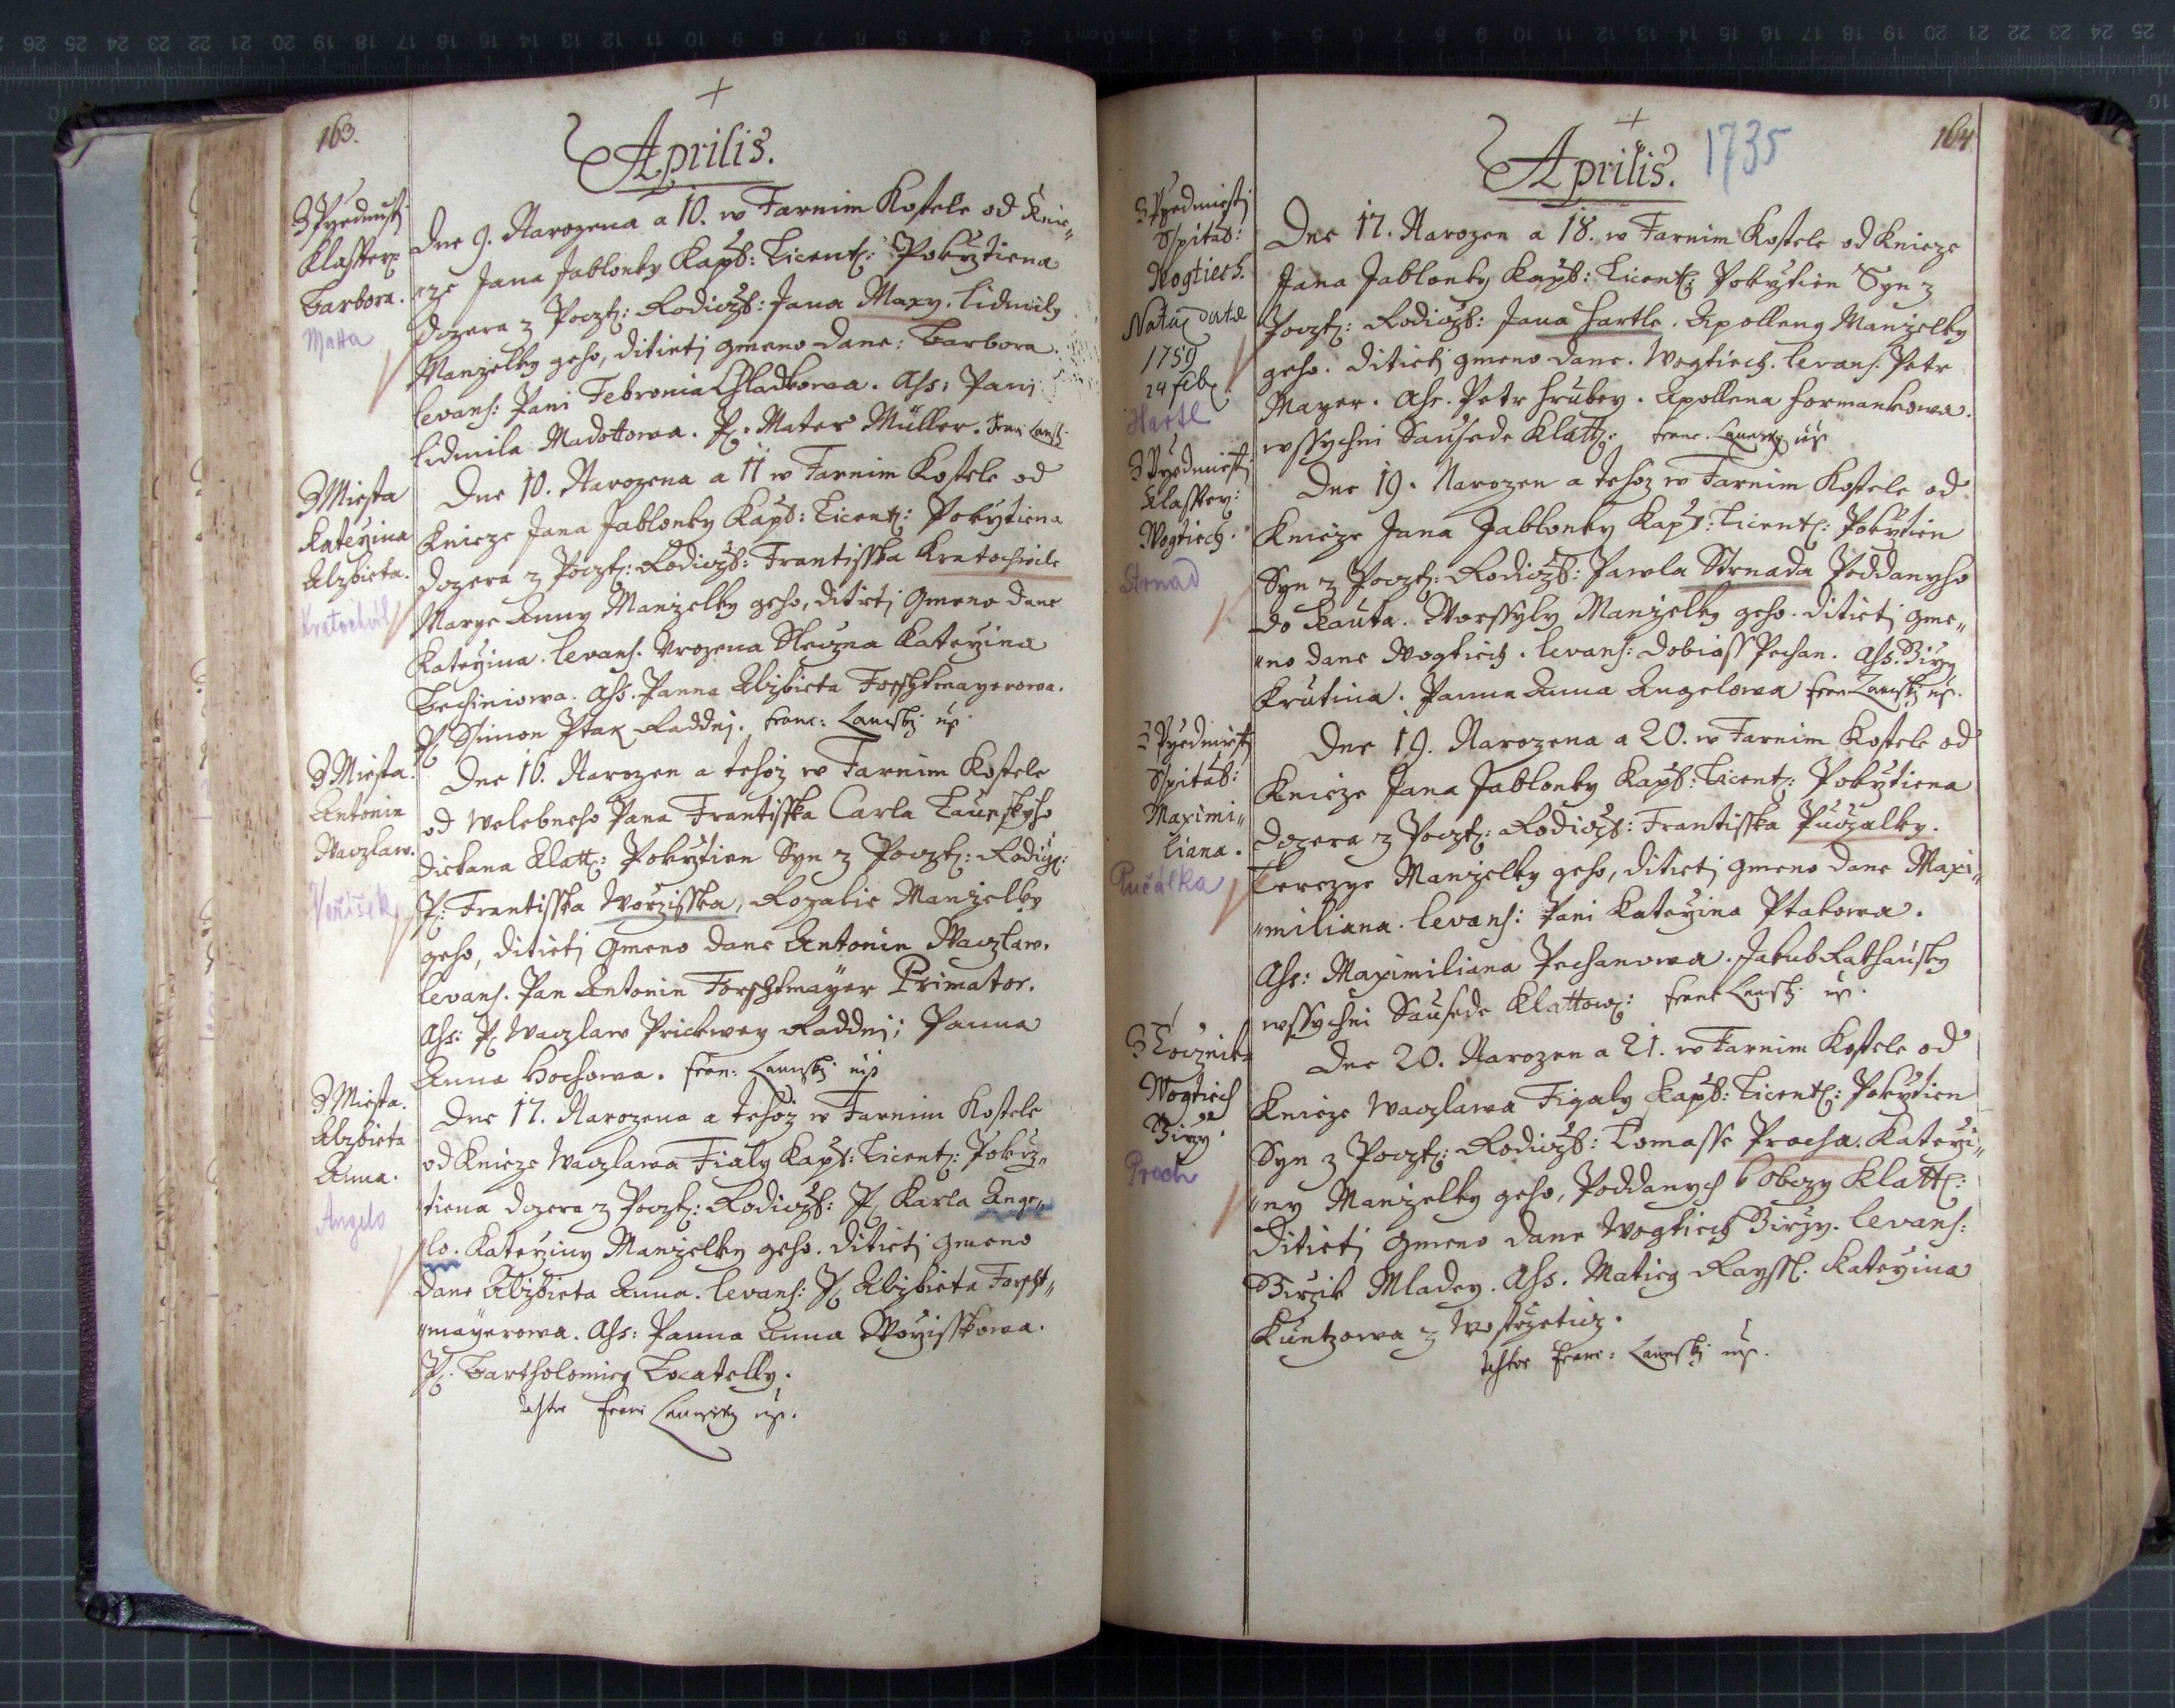 163.
Aprilis.
Z Przedmiesti
Klasster:
Barbora.
Matta
Dne 9. Narozena a 10. w Farnim Kostele od Knie„
„ze Jana Jablonky Kapl: Licent: Pokrztiena
Dczera z Pocztl: Rodiczb: Jana Maxy. Lidmily
Manzelky geho, ditieti gmeno dane: Barbora.
Levans: Pani Febronia Chladkowa. Ass: Pani
Lidmila Madottowa. P. Mates Müller.
Z Miesta
Katerzina
Alzbieta.
Kratochvíl
Dne 10. Narozena a 11 w Farnim Kostele od
Knieze Jana Jablonky Kapl: Licent: Pokrztiena
Dczera z Pocztl: Rodiczb: Frantisska Kratochwile
Marye Anny Manzelky geho, ditieti gmeno dane
Katerzina. Levans. Urozena Sleczna Katerzina
Bechiniowa. Ass. Panna Alzbieta Forschtmayerowa.
P. Simon Ptak Raddni. Franc:
Z Miesta.
Antonin
Waczlaw.
Voříšek
Dne 16. Narozen a tehoz w Farnim Kostele
od Welebneho Pana Frantisska Carla
Diekana Klatt: Pokrztien Syn z Pocztl: Rodicz:
P: Frantisska Worzisska, Rozalie Manzelky
geho, ditieti gmeno dane Antonin Waczlaw.
Levans. Pan Antonin Forschtmayer Primator.
Ass: P. Waczlaw Prickwey Raddni; Panna
Anna Hochowa. Fran:
Z Miesta.
Alzbieta
Anna.
Angelo
Dne 17. Narozena a tehoz w Farnim Kostele
od Knieze Waczlawa Fialy Kapl: Licent: Pokrz„
„tiena Dczera z Pocztl: Rodiczb: P. Karla Ange„
lo. Katerziny Manzelky geho. ditieti gmeno
dane Alzbieta Anna. Levans: P. Alzbieta Forscht„
„mayerowa. Ass: Panna Anna Worzisskowa.
P. Bartholomieg Locatelly.
164
Aprilis.
1735
Z Przedmiesti
Spitab:
Wogtiech.
1759
24 feb
Hartl
Dne 17. Narozen a 18. w Farnim Kostele od Knieze
Jana Jablonky Kapl: Licent: Pokrztien Syn z
Pocztl: Rodiczb: Jana Hartle. Apolleny Manzelky
geho. ditieti gmeno dane. Wogtiech. Levans. Petr
Mayer. Ass. Petr Hrubey. Apollena Formankowa.
wssychni Sausede Klatt:
Z Przedmiesti
Klasster:
Wogtiech.
Strnad
Dne 19. Narozen a tehoz w Farnim Kostele od
Knieze Jana Jablonky Kapl: Licent: Pokrztien
Syn z Pocztl: Rodiczb: Pawla Strnada Poddanyho
do Kauta. Worssyly Manzelky geho. ditieti gme„
„no dane Wogtiech. Levans: Dobiass Pechan. Ass. Girzy
Krutina. Panna Anna Angelowa
Z Przedmiesti
Spitab:
Maximi„
liana.
Pučalka
Dne 19. Narozena a 20. w Farnim Kostele od
Knieze Jana Jablonky Kapl: Licent: Pokrztiena
Dczera z Pocztl: Rodiczb: Frantisska Puczalky.
Terezye Manzelky geho, ditieti gmeno dane Maxi„
„miliana. Levans: Pani Katerzina Ptakowa.
Ass: Maximiliana Pechanowa. Jakub Rathausky
wssychni Sausede Klattow:
Z Loucznik
Wogtiech
Girzy.
Proch
Dne 20. Narozen a 21. w Farnim Kostele od
Knieze Waczlawa Figaly Kapl: Licent: Pokrztien
Syn z Pocztl: Rodiczb: Tomasse Procha. Katerzi„
„ny Manzelky geho, Poddanych k Obczy Klatt:
Ditieti gmeno dane Wogtiech Girzy. Levans:
Girzik Mladey. Ass. Matieg Rayssl. Katerzina
Kuntzowa z